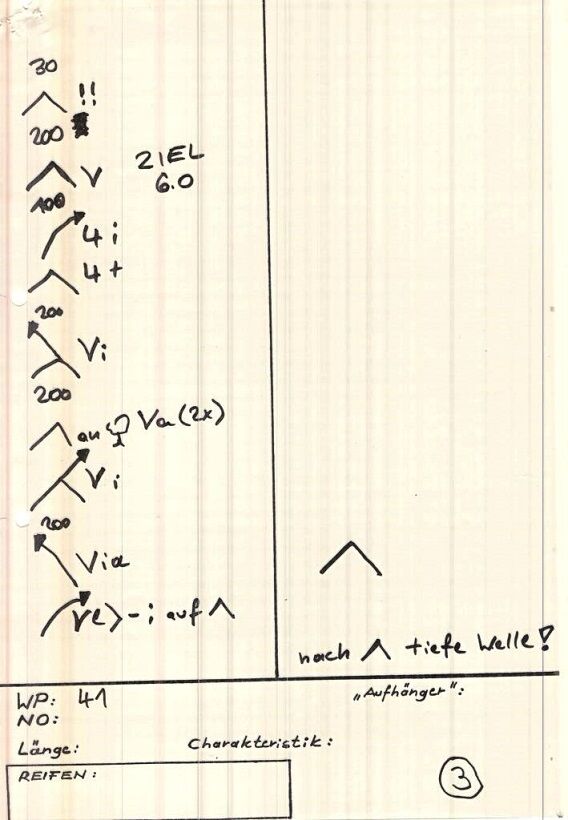 30
!!
200
V
ZIEL
6.0
100
4 i
4 +
200
Vi
200
an Va (2x)
Vi
200
Via
- i auf
nach tiefe Welle!
WP: 41
NO:
„Aufhänger":
Länge:
Charakteristik:
REIFEN:
3